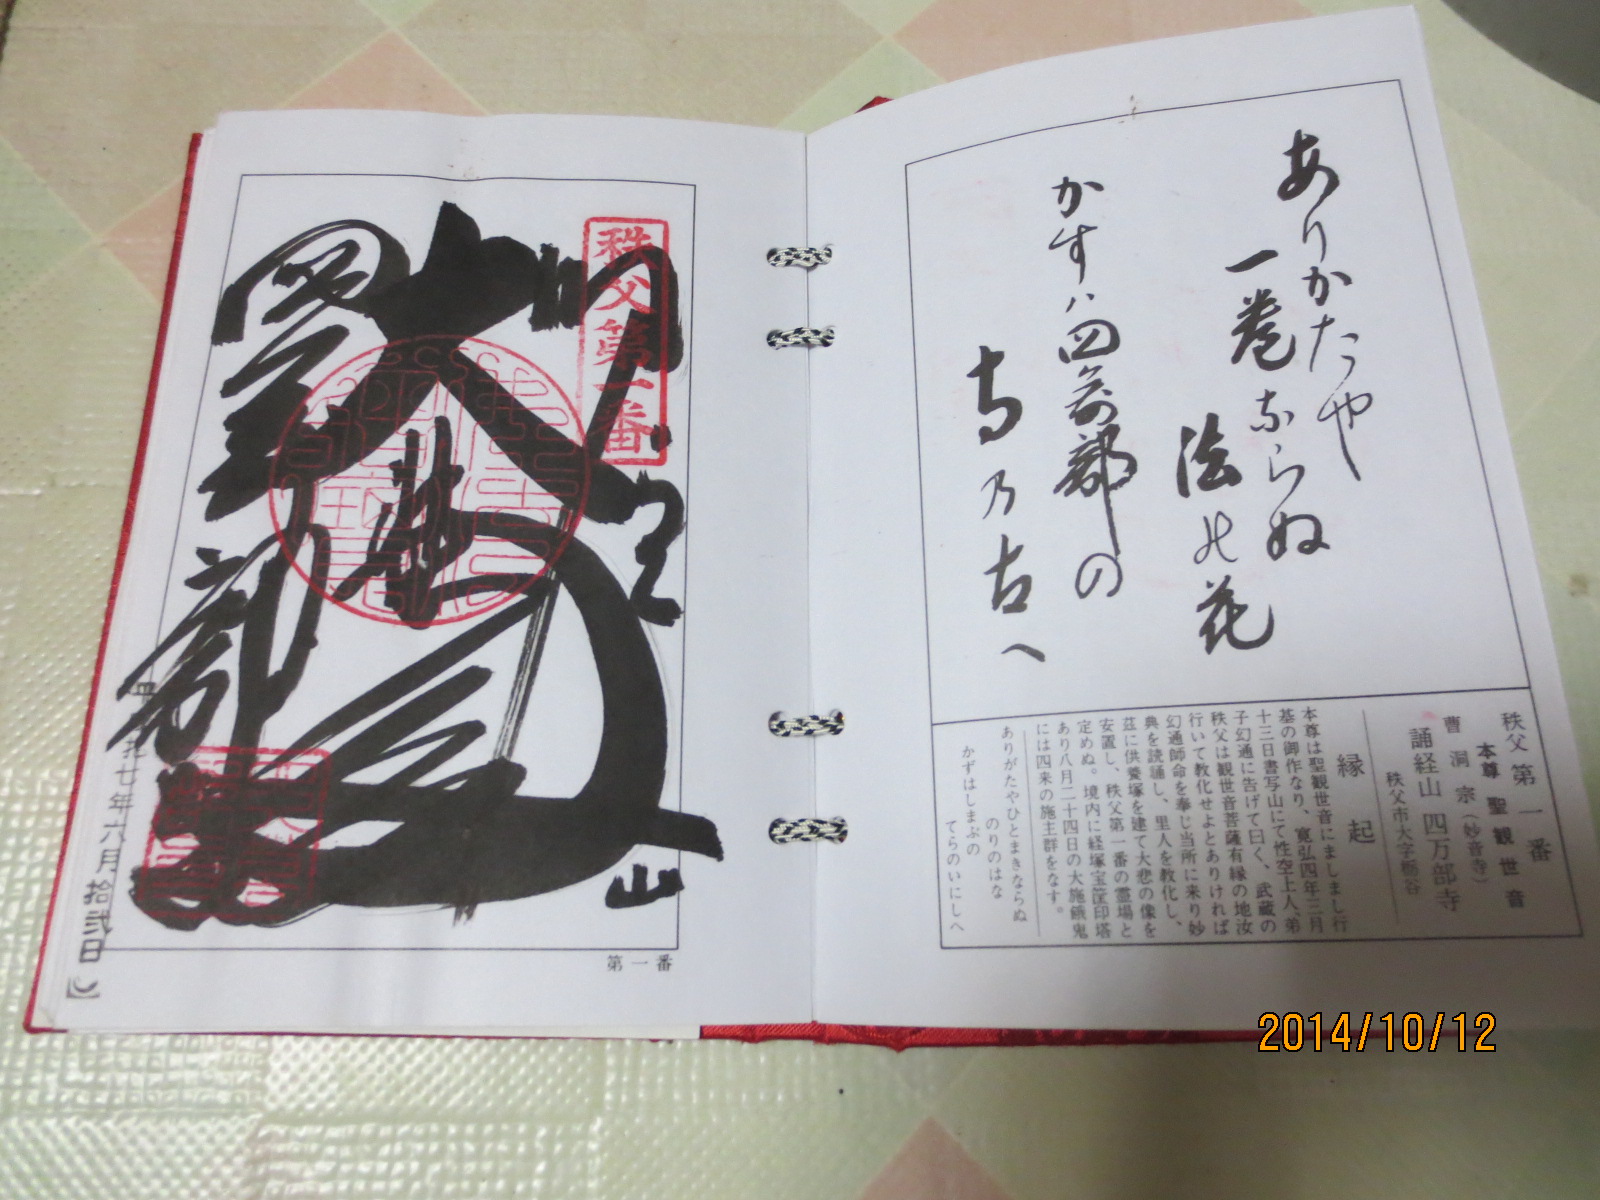 ありかたや
一巻ならぬ
法の花
かすハ四萬部の
寺乃古へ
秩父第一番
本尊 聖観世音
曹洞宗(妙音寺)
誦経山 四万部寺
秩父市大字栃谷
縁起
本尊は聖観世音にましまし行
基の御作なり、寛弘四年三月
十三日書写山にて性空上人、弟
子幻通に告げて曰く、武蔵の
秩父は観世音菩薩有縁の地汝
行いて教化せよとありければ
幻通師命を奉じ当所に来り妙
典を読誦し、里人を教化し、
茲に供養塚を建て大悲の像を
安置し、秩父第一番の霊場と
定めぬ。境内に経塚宝筐印塔
あり八月二十四日の大施餓鬼
には四来の施主群をなす。
ありがたやひとまきならぬ
のりのはな
かずはしまぶの
てらのいにしへ
秩父第一番
月
拾七年六月拾弐日
第一番
2014/10/12